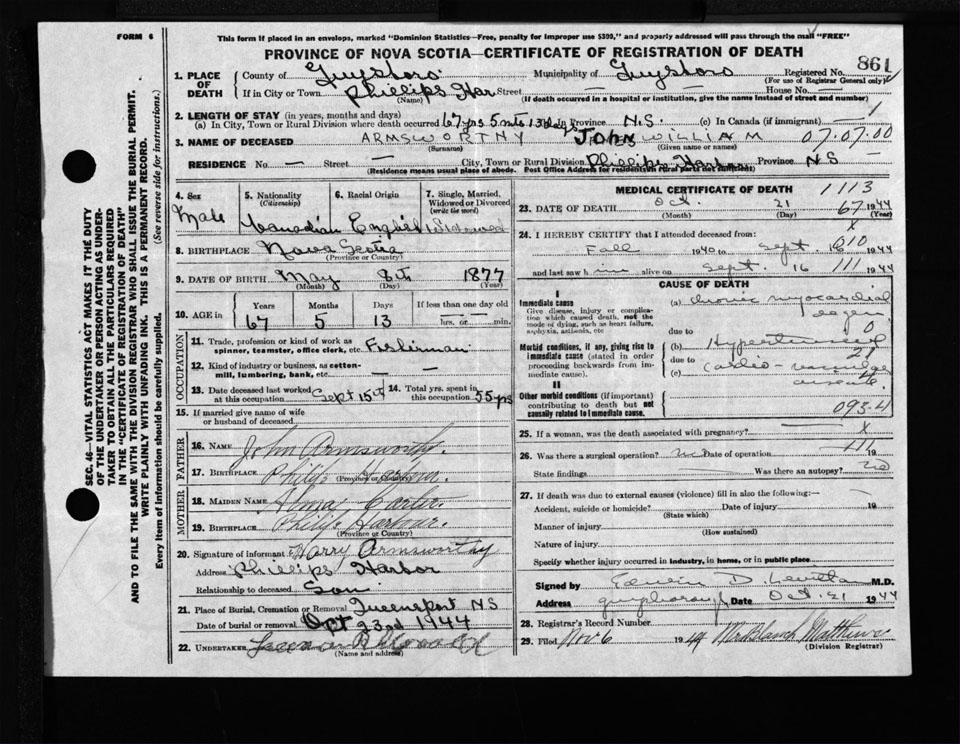 FORM 6
This form if placed in an envelope, marked "Dominion Statistics—Free, penalty for improper use $300," and properly addressed will pass through the mail "FREE"
PROVINCE OF NOVA SCOTIA—CERTIFICATE OF REGISTRATION OF DEATH
SEC. 46—VITAL STATISTICS ACT MAKES IT THE DUTY
OF THE UNDERTAKER OR PERSON ACTING AS UNDER-
TAKER TO OBTAIN ALL THE PARTICULARS REQUIRED
IN THE "CERTIFICATE OF REGISTRATION OF DEATH"
AND TO FILE THE SAME WITH THE DIVISION REGISTRAR WHO SHALL ISSUE THE BURIAL PERMIT.
WRITE PLAINLY WITH UNFADING INK. THIS IS A PERMANENT RECORD.
Every item of information should be carefully supplied. (See reverse side for instructions.)
1. PLACE OF DEATH
County of Guysboro Municipality of Guysboro Registered No. 861
(For use of Registrar General only)
If in City or Town Phillips Har. Street — House No. —
(Name) (If death occurred in a hospital or institution, give the name instead of street and number)
2. LENGTH OF STAY (in years, months and days)
(a) In City, Town or Rural Division where death occurred 67 yrs 5 mts 13 days (b) in Province N.S. (c) in Canada (if immigrant) — 1
3. NAME OF DECEASED ARMSWORTHY JOHN WILLIAM 07.07.00
(Surname) (Given name or names)
RESIDENCE No. — Street — City, Town or Rural Division Phillips Harbor Province N S
(Residence means usual place of abode. Post Office Address for residents in rural parts not sufficient)
4. Sex Male
5. Nationality (Citizenship) Canadian
6. Racial Origin English
7. Single, Married, Widowed or Divorced (write the word) Widowed
8. BIRTHPLACE Nova Scotia
(Province or Country)
9. DATE OF BIRTH May 8th 1877
(Month) (Day) (Year)
10. AGE in Years Months Days If less than one day old
67 5 13 hrs. or min.
OCCUPATION
11. Trade, profession or kind of work as
spinner, teamster, office clerk, etc. Fisherman
12. Kind of industry or business, as cotton-
mill, lumbering, bank, etc. — —
13. Date deceased last worked at this occupation Sept 15th 14. Total yrs. spent in this occupation 55 yrs
15. If married give name of wife
or husband of deceased
FATHER
16. NAME John Armsworthy
17. BIRTHPLACE Phillips Harbour
(Province or Country)
MOTHER
18. MAIDEN NAME Alma Carter
19. BIRTHPLACE Phillips Harbour
(Province or Country)
20. Signature of informant Harry Armsworthy
Address Phillips Harbor
Relationship to deceased Son
21. Place of Burial, Cremation or Removal Queensport NS
Date of burial or removal Oct 23rd 1944
22. UNDERTAKER
(Name and address)
MEDICAL CERTIFICATE OF DEATH 1113
23. DATE OF DEATH Oct. 21 67 1944
(Month) (Day) (Year)
X
24. I HEREBY CERTIFY that I attended deceased from:
Fall 1940 to Sept. 010 1944
and last saw him alive on Sept. 16 111 1944
CAUSE OF DEATH
I
Immediate cause
Give disease, injury or complica-
tion which caused death, not the
mode of dying, such as heart failure,
asphyxia, asthenia, etc
(a) Chronic myocardial
degen. 0
due to
Morbid conditions, if any, giving rise to
immediate cause (stated in order
proceeding backwards from im-
mediate cause).
(b) Hypertensive
due to
(c) cardio-vascular
disease.
II
Other morbid conditions (if important)
contributing to death but not
causally related to immediate cause.
093-4
25. If a woman, was the death associated with pregnancy? X
26. Was there a surgical operation? no Date of operation 19
State findings Was there an autopsy? no
27. If death was due to external causes (violence) fill in also the following:
Accident, suicide or homicide? Date of injury 19
(State which)
Manner of injury
(How sustained)
Nature of injury
Specify whether injury occurred in industry, in home, or in public place
Signed by Edwin D. M.D.
Address Date Oct. 21 1944
28. Registrar's Record Number
29. Filed Nov 6 1944 Mrs Blanch Matthews
(Division Registrar)